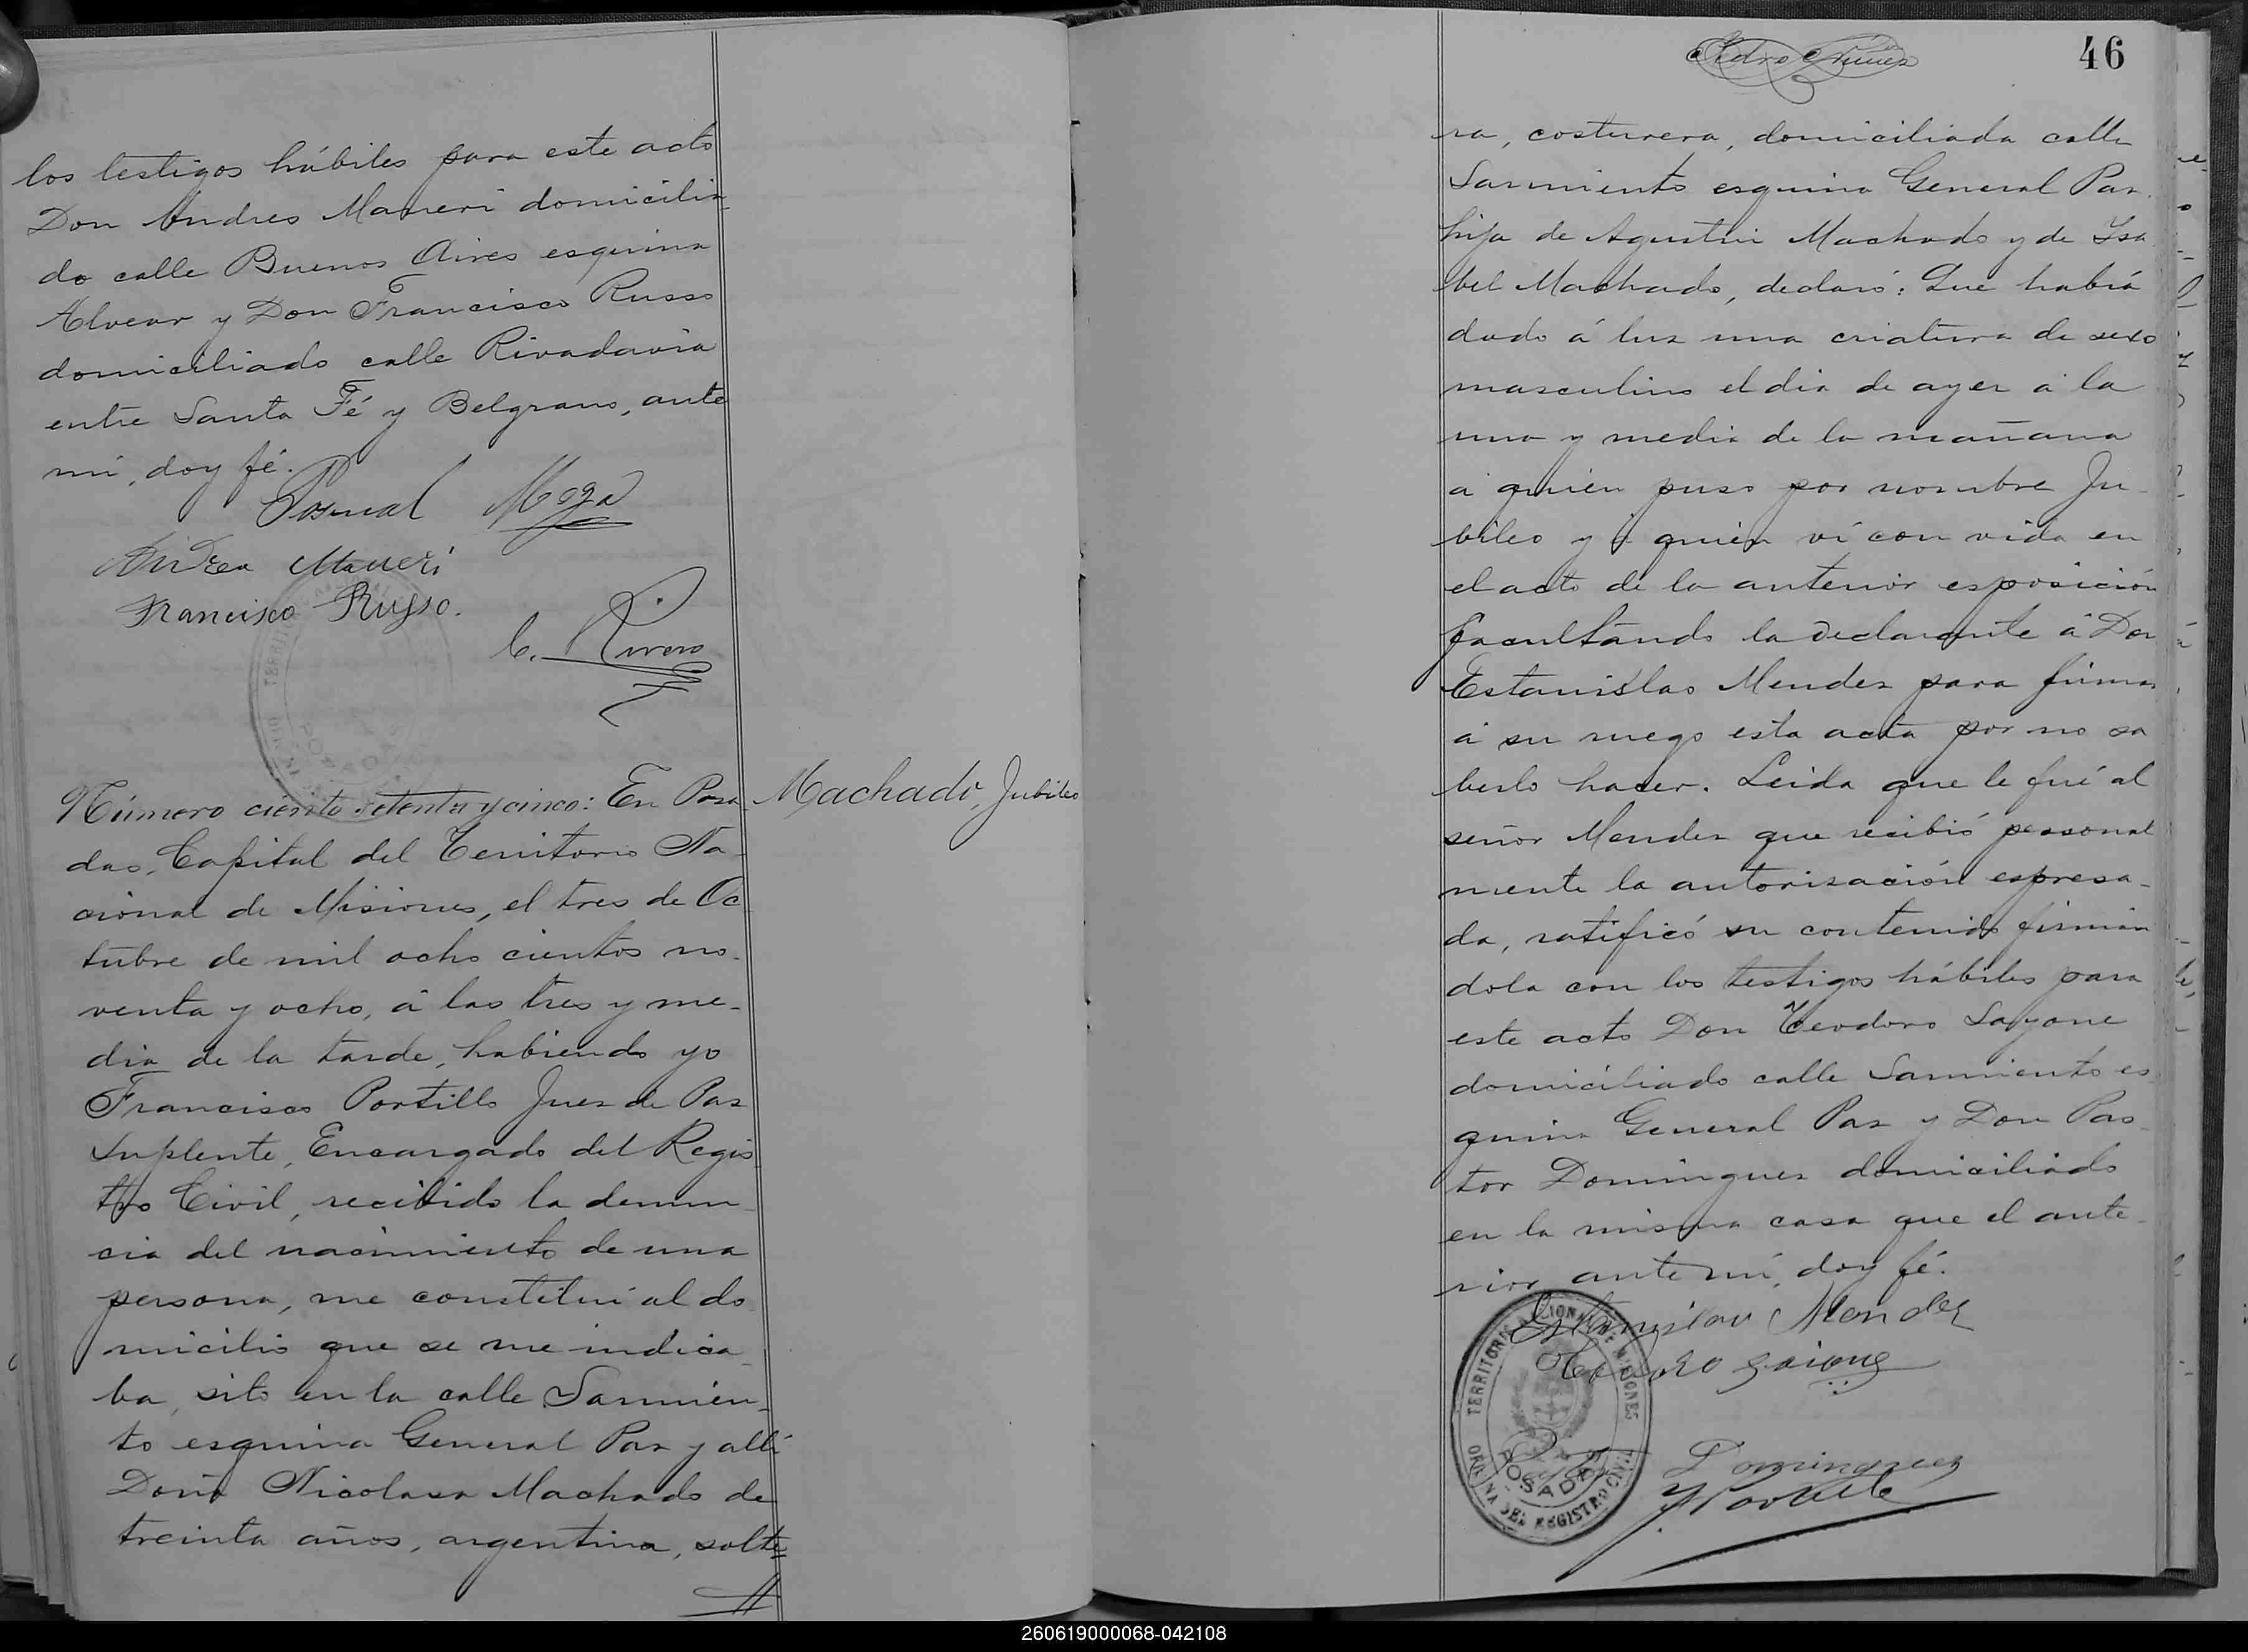 los testigos hábiles para este acto
Don Andres Maneri domicilia-
do calle Buenos Aires esquina
Alvear y Don Francisco Russo
domiciliado calle Rivadavia
entre Santa Fé y Belgrano, ante
mi, doy fé.
Pascual Moga
Andrea Maneri
Francisco Russo.
C. Rivero
Número ciento setenta y cinco: En Posa
Machado, Jubileo
das, Capital del Territorio Na-
cional de Misiones, el tres de Oc
tubre de mil ocho cientos no-
venta y ocho, á las tres y me-
dia de la tarde, habiendo yo
Francisco Portillo Juez de Paz
Suplente, Encargado del Regis
tro Civil, recibido la denun-
cia del nacimiento de una
persona, me constituí al do
micilio que se me indica-
ba, sito en la calle Sarmien-
to esquina General Paz y allí
Doña Nicolasa Machado de
treinta años, argentina, solte=
46
ra, costurera, domiciliada calle
Sarmiento esquina General Paz
hija de Agustin Machado y de Isa
bel Machado, declaró: Que habia
dado á luz una criatura de sexo
masculino el dia de ayer á la
una y media de la mañana
á quien puso por nombre Ju-
bileo y á quien ví con vida en
el acto de la anterior esposición
facultando la declarante á Don
Estanislao Mendez para firmar
á su ruego esta acta por no sa
berlo hacer. Leida que le fué al
señor Mendez que recibió personal
mente la autorización espresa-
da, ratificó su contenido firmán
dola con los testigos hábiles para
este acto Don Teodoro Sayone
domiciliado calle Sarmiento es
quina General Paz y Don Pas
tor Dominguez domiciliado
en la misma casa que el ante-
rior, ante mí, doy fé.
Estanislao Mendez
Dominguez
F Portillo
TERRITORIO NACIONAL DE MISIONES
POSADAS
OFICINA DEL REGISTRO CIVIL
260619000068-042108